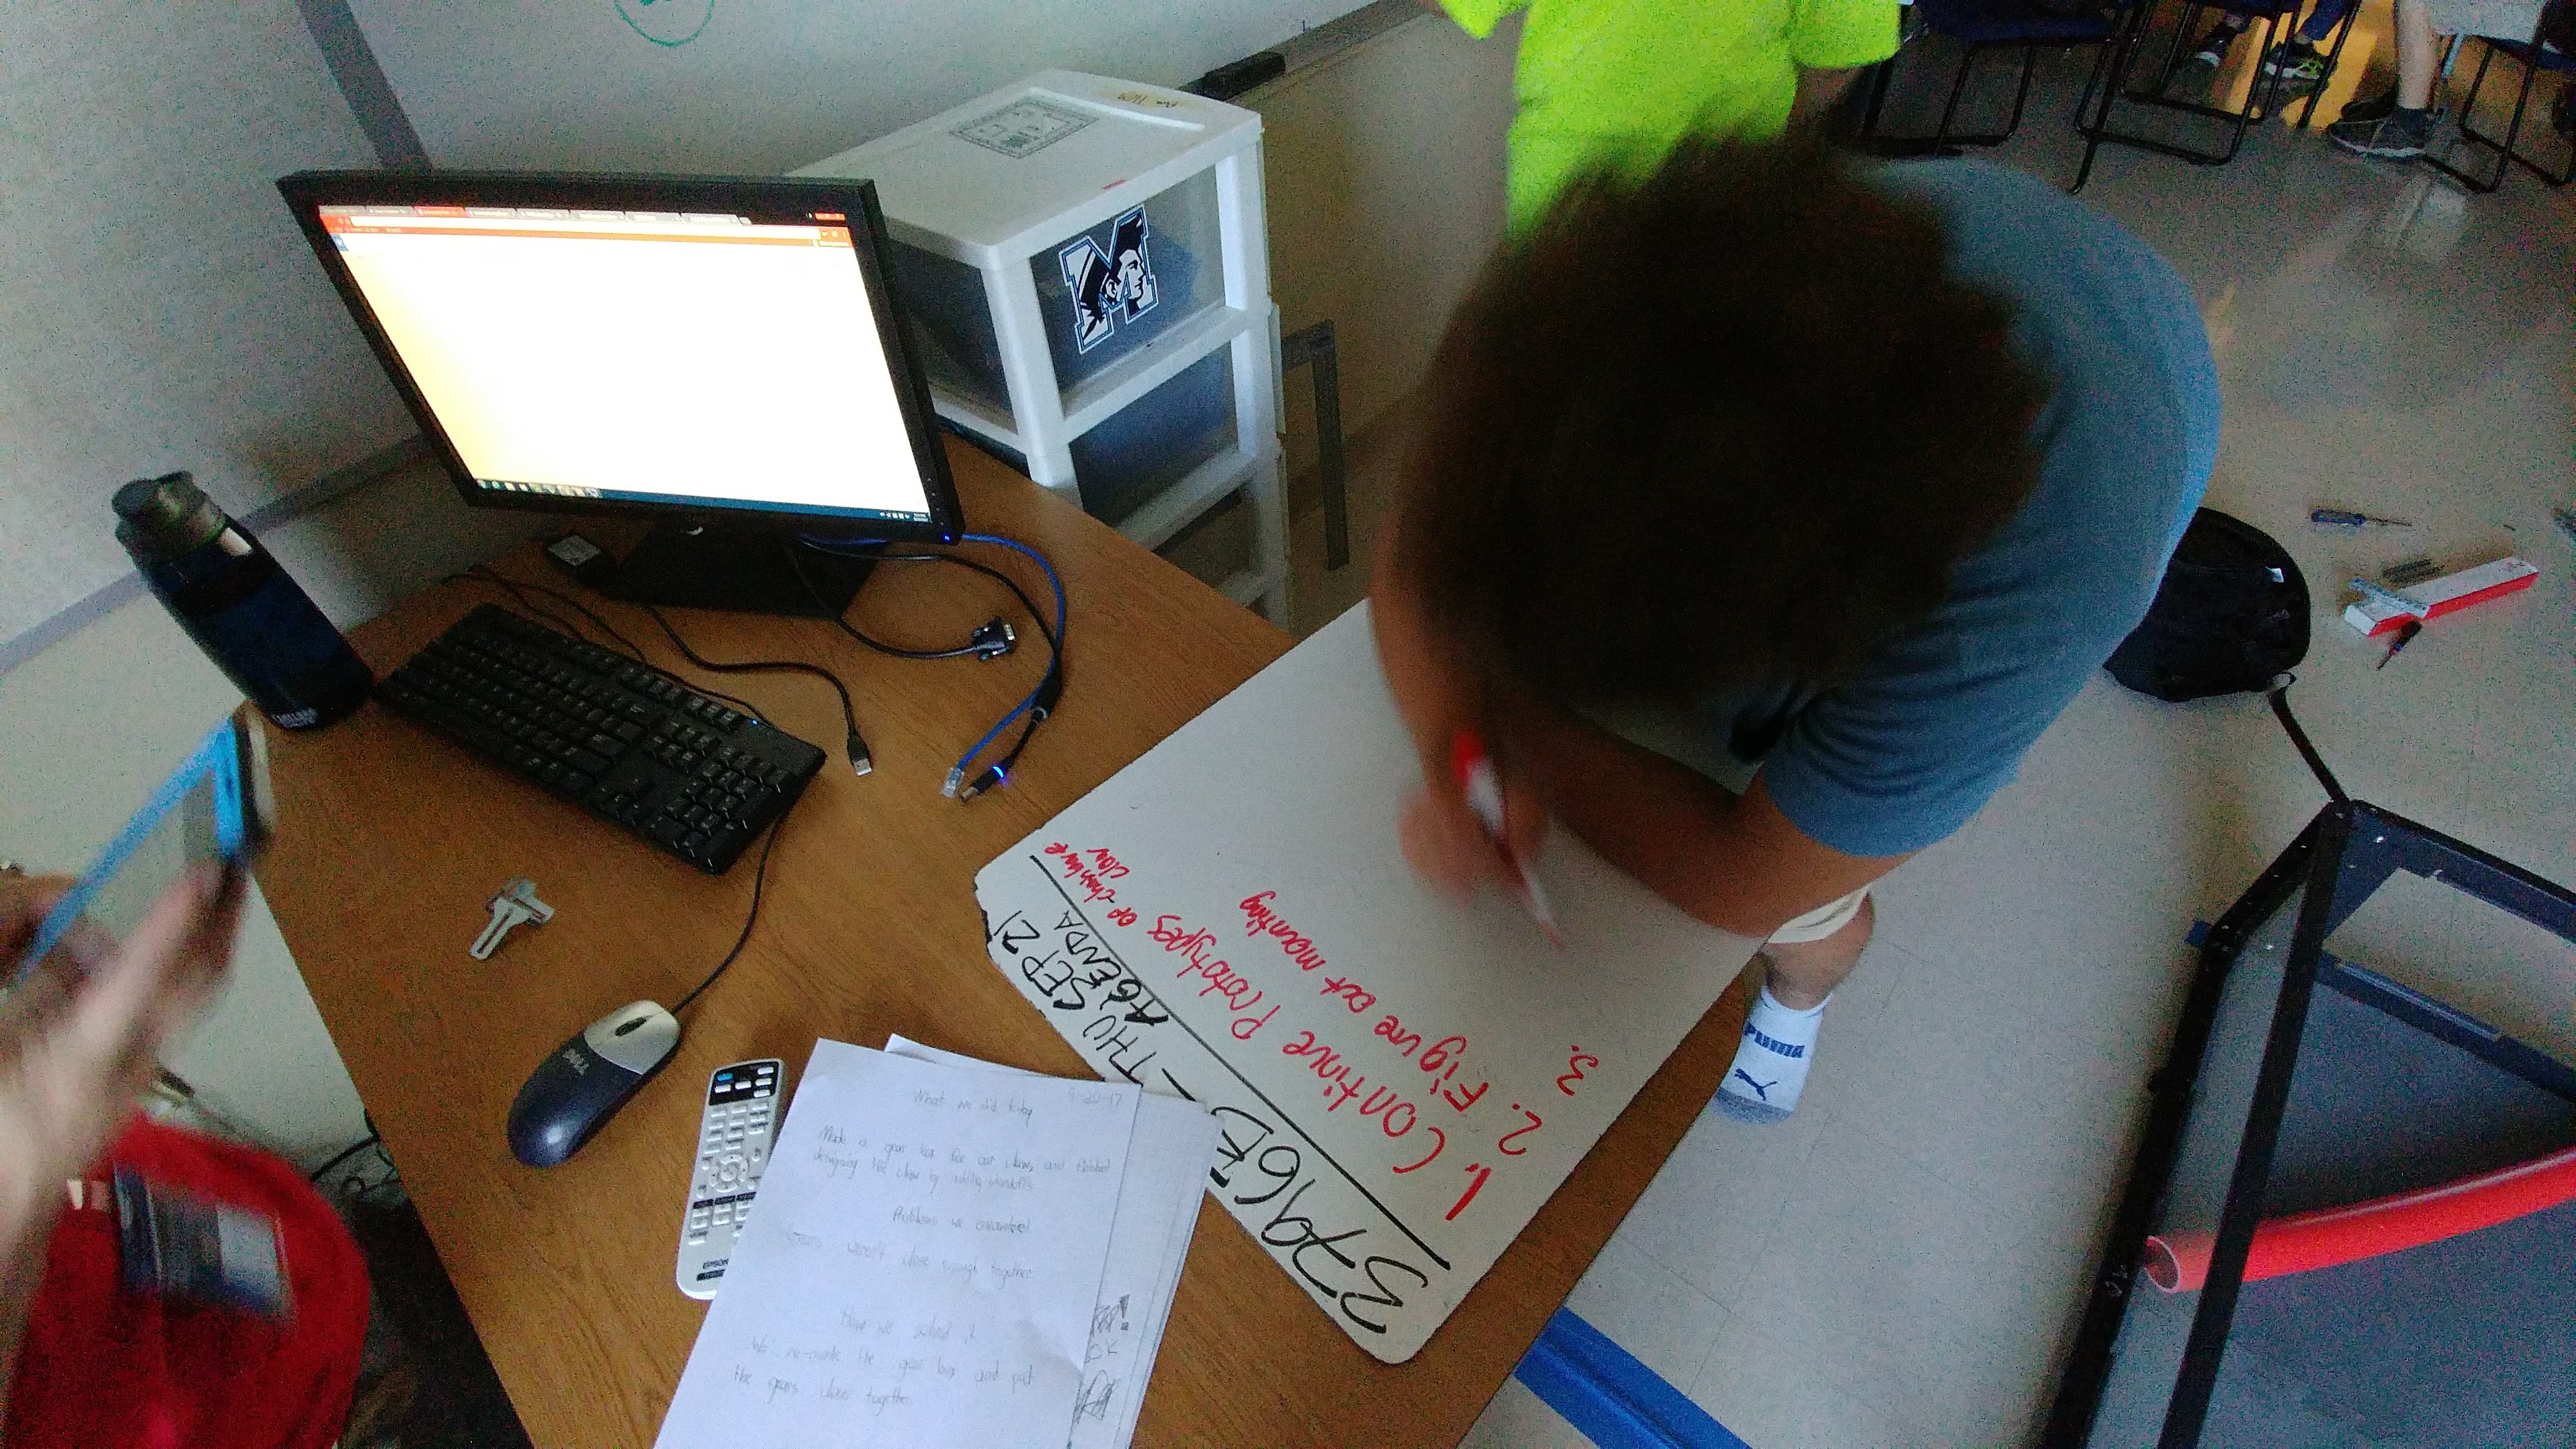 3796B - THU SEP 21
AGENDA
1. Continue Prototypes of
claw
2. Figure out mounting
3.
What we did today 9-20-17
Made a gear box for our claw, and finished
designing the claw by adding standoffs
Problems we encountered
Gears weren't close enough together
How we solved it
We re-made the gear box and put
the gears closer together
OK
DELL
EPSON
PUMA
M